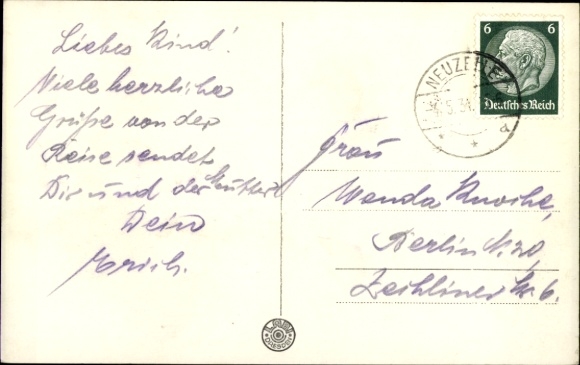 Liebes Kind!
Viele herzliche
Grüße von der
Reise sendet
Dir und der Mutter
Dein
Erich.
6 6
Deutsches Reich
NEUZELLE
5.34.
a
Frau
Wanda Knoche,
Berlin N. 20,
Zechliner Str. 6.
DRESDEN